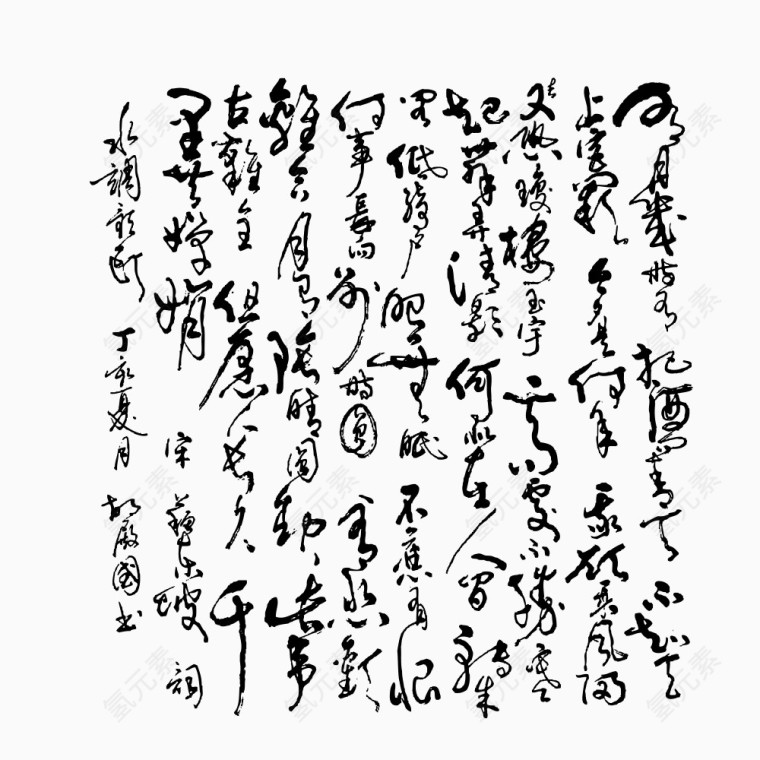 明月幾時有把酒問青天不知天
上宮闕今夕是何年我欲乘風歸
去又恐瓊樓玉宇高處不勝寒
起舞弄清影何似在人間轉朱
閣低綺戶照無眠不應有恨
何事長向別時圓人有悲歡
離合月有陰晴圓缺此事
古難全但願人長久千
里共嬋娟 宋 蘇東坡 詞
水調歌頭 丁亥夏月 胡國書